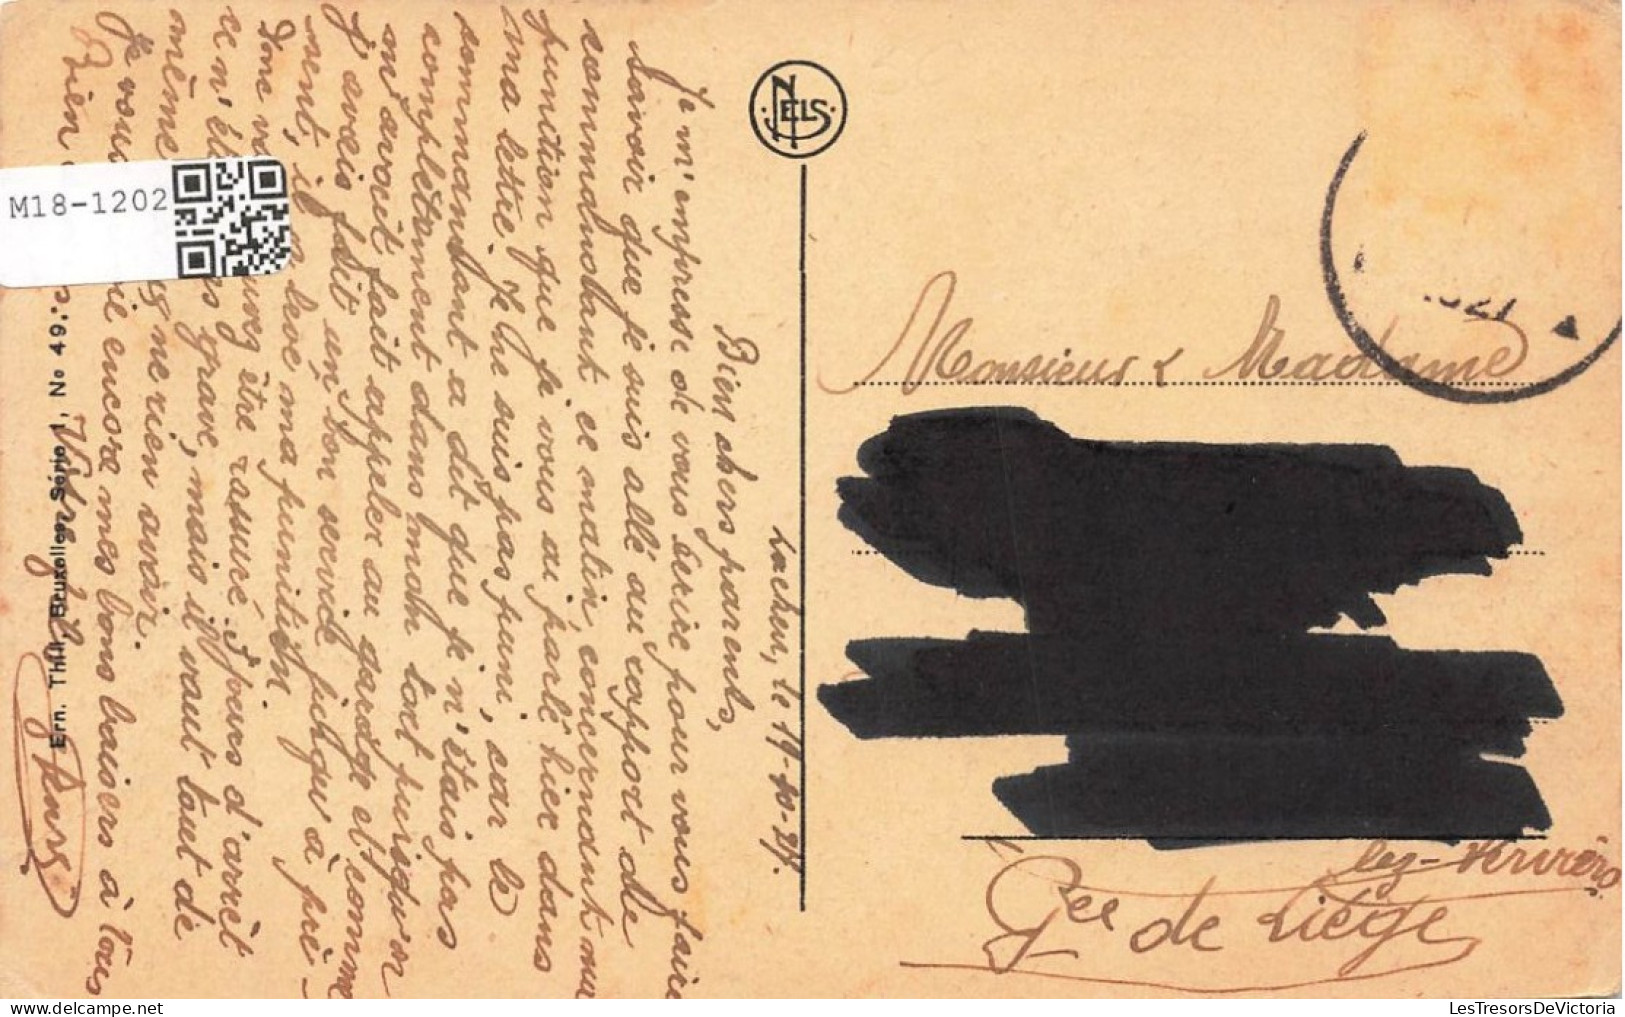 Lachen, le 19-10-27.
Bien chers parents,
Je m'empresse de vous écrire pour vous faire
savoir que je suis allé au rapport de
commandant ce matin, concernant ma
punition que je vous ai parlé hier dans
ma lettre. Je ne suis pas puni, car le
commandant a dit que je n'étais pas
complètement dans mon tort puisqu'on
m'avait fait appeler au garage et comme
j'avais fait un bon service jusqu'à pré-
sent, il m leve ma punition.
Donc vo uvez être rassuré. 4 jours d'arrêt
ce n'ét s grave, mais il vaut tout de
même ne rien avoir.
Je vou ie encore mes bons baisers à tous
Bien
Votre fils
NELS
Ern. Thill, Bruxelles Série 1, No 49.
M18-1202
Monsieur & Madame
lez-Verviers
Pce de Liège
LesTresorsDeVictoria